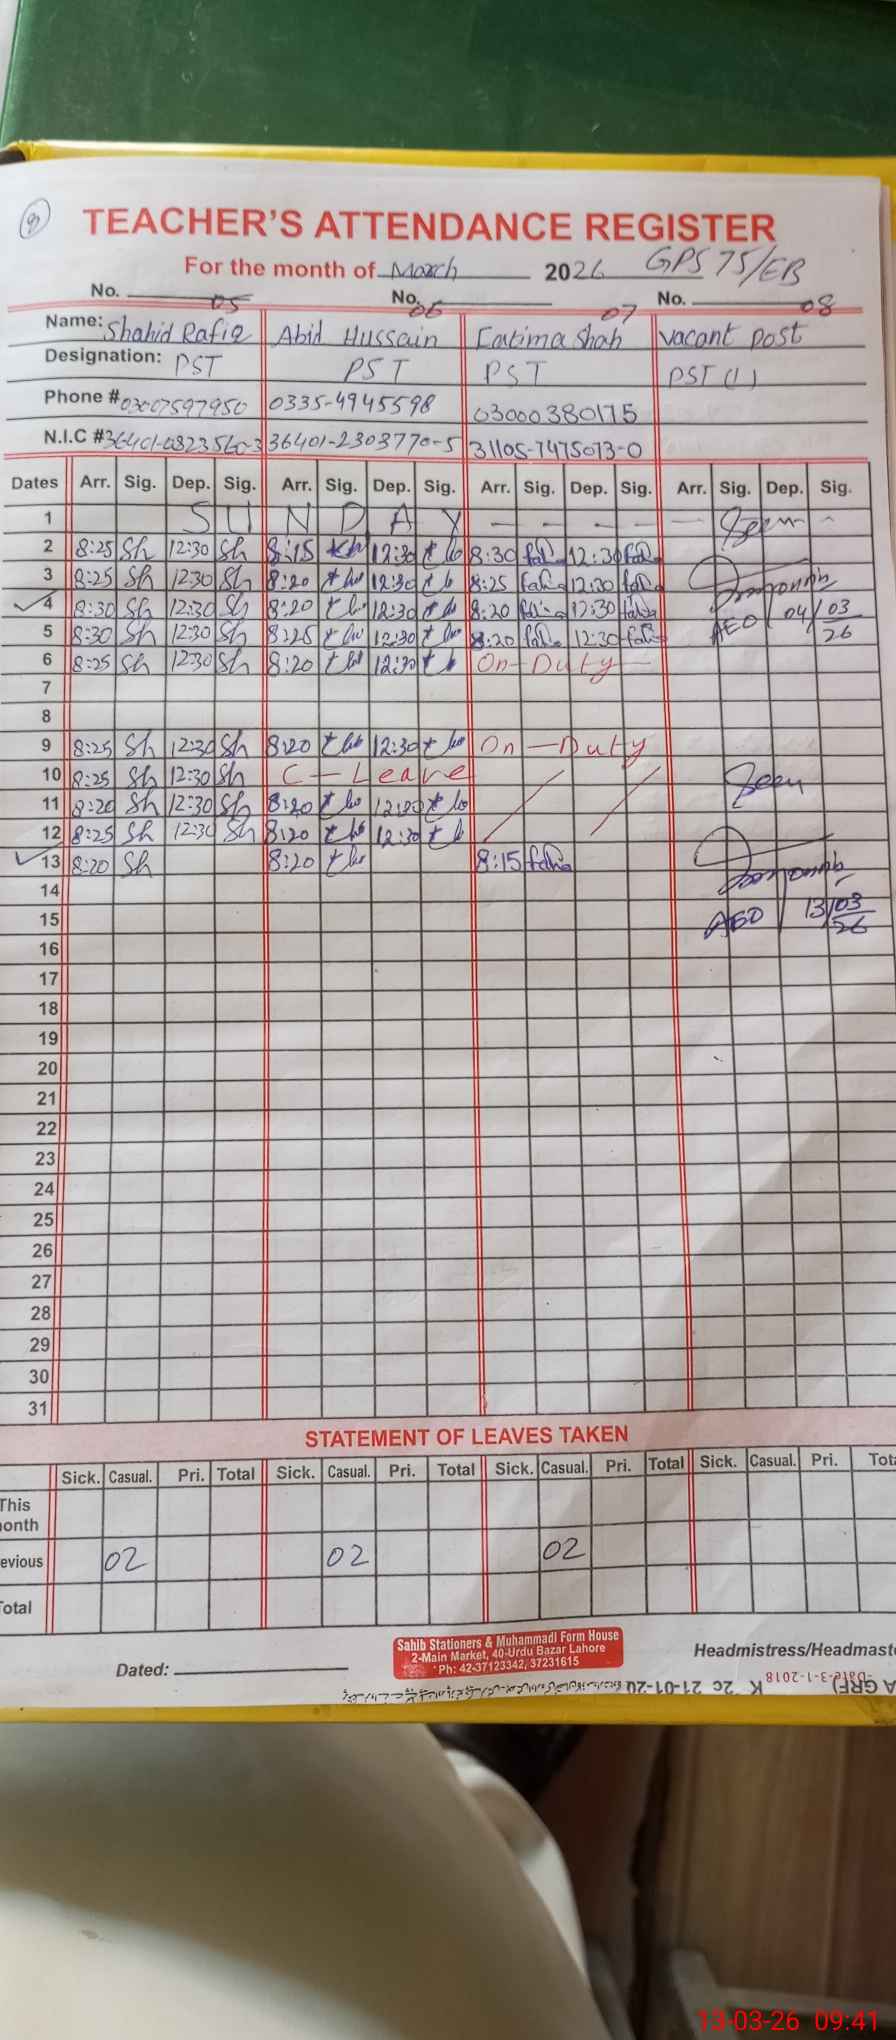 9
TEACHER'S ATTENDANCE REGISTER
For the month of March 2026 GPS 75/EB
No. 05 No. 06 07 No. 08
Name: Shahid Rafiq Abid Hussain Fatima Shah Vacant post
Designation: PST PST PST PST (1)
Phone # 03007597950 0335-4945598 03000380175
N.I.C # 36401-0823560-3 36401-2303770-5 31105-7475073-0
Dates Arr. Sig. Dep. Sig. Arr. Sig. Dep. Sig. Arr. Sig. Dep. Sig. Arr. Sig. Dep. Sig.
1 S U N D A Y — — — — — Seen
2 8:25 Sh 12:30 Sh 8:15 12:30 8:30 12:30
3 8:25 Sh 12:30 Sh 8:20 12:30 8:25 12:30
4 8:30 Sh 12:30 Sh 8:20 12:30 8:20 12:30 AEO 04/03/26
5 8:30 Sh 12:30 Sh 8:25 12:30 8:20 12:30
6 8:25 Sh 12:30 Sh 8:20 12:30 On-Duty
7
8
9 8:25 Sh 12:30 Sh 8:20 12:30 On-Duty
10 8:25 Sh 12:30 Sh C-Leave Seen
11 8:20 Sh 12:30 Sh 8:20
12 8:25 Sh 12:30 Sh 8:20 12:30
13 8:20 Sh 8:20 8:15
14
15 AEO 13/03/26
16
17
18
19
20
21
22
23
24
25
26
27
28
29
30
31
STATEMENT OF LEAVES TAKEN
Sick. Casual. Pri. Total Sick. Casual. Pri. Total Sick. Casual. Pri. Total Sick. Casual. Pri. Tota
This
onth
evious 02 02 02
Total
Dated:
Sahib Stationers & Muhammadi Form House
2-Main Market, 40-Urdu Bazar Lahore
Ph: 42-37123342, 37231615
Headmistress/Headmast
Date-3-1-2018
A GRF)
13-03-26 09:41